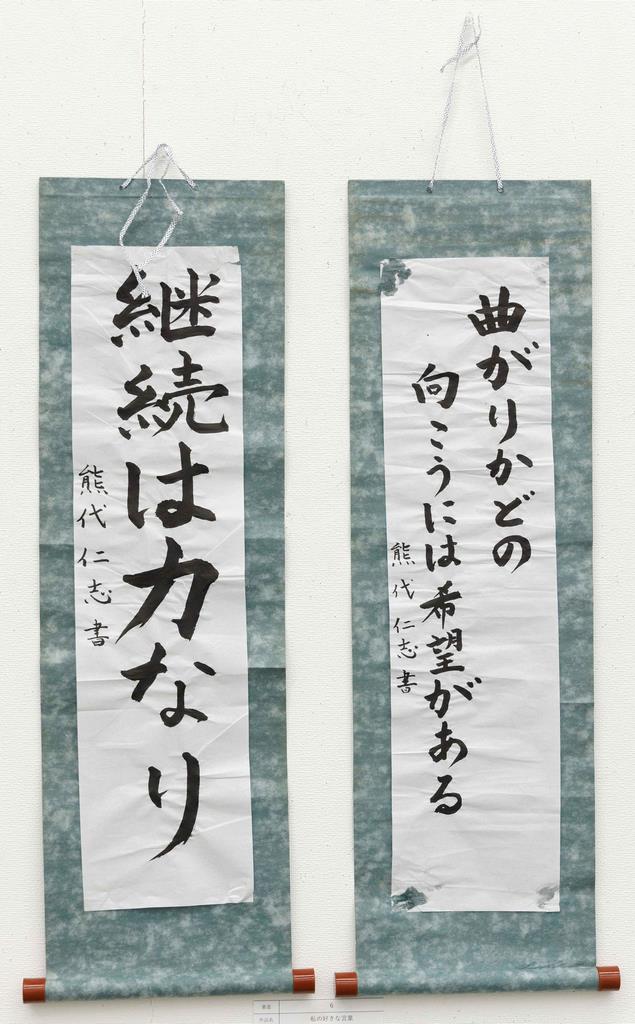 曲がりかどの
向こうには希望がある
熊代仁志書
継続は力なり
熊代仁志書
6
作品名 私の好きな言葉